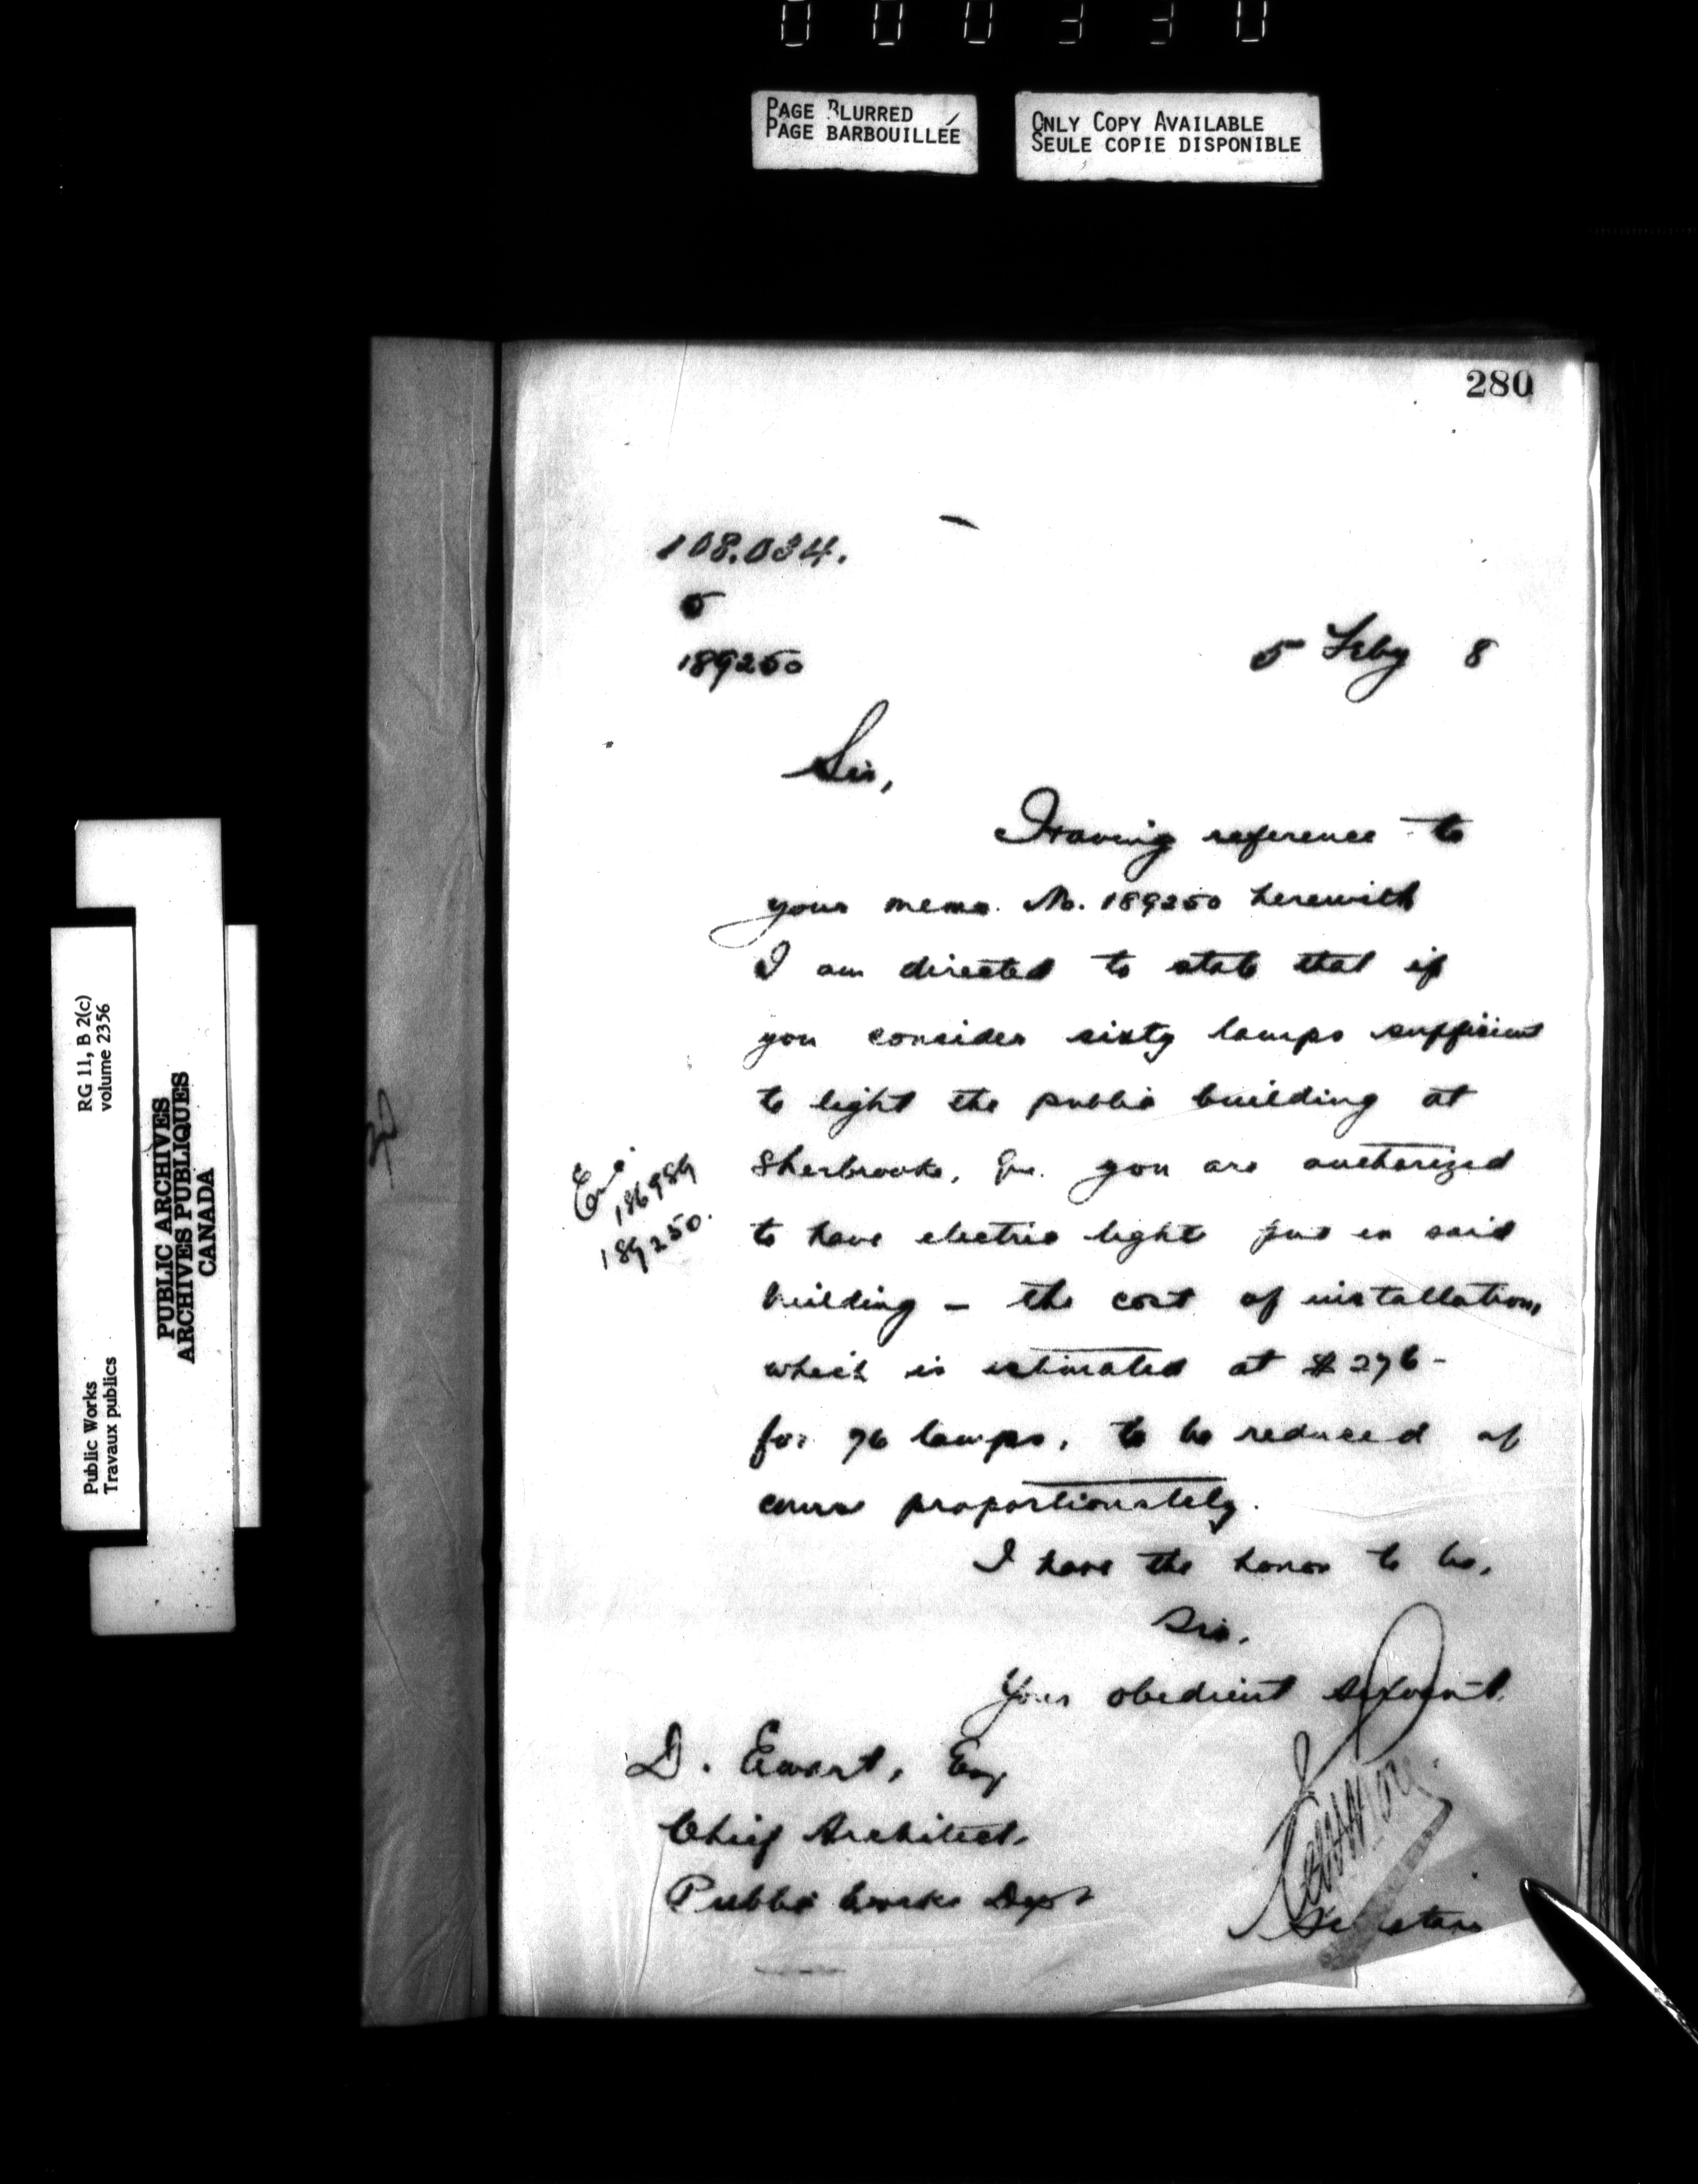 000330
PAGE BLURRED
PAGE BARBOUILLÉE
ONLY COPY AVAILABLE
SEULE COPIE DISPONIBLE
280
108.034.
5
189250
5 Feby 8
Sir,
Having reference to
your memo. No. 189250 herewith
I am directed to state that if
you consider sixty lamps sufficient
to light the public building at
Sherbrooke, Que. you are authorized
to have electric light put in said
building – the cost of installation,
which is estimated at $276-
for 96 lamps, to be reduced of
course proportionately.
I have the honor to be,
Sir,
Your obedient servant
D. Ewart, Esq
Chief Architect.
Public Works Dept
Secretary
186989
189250.
RG 11, B 2(c)
volume 2356
PUBLIC ARCHIVES
ARCHIVES PUBLIQUES
CANADA
Public Works
Travaux publics